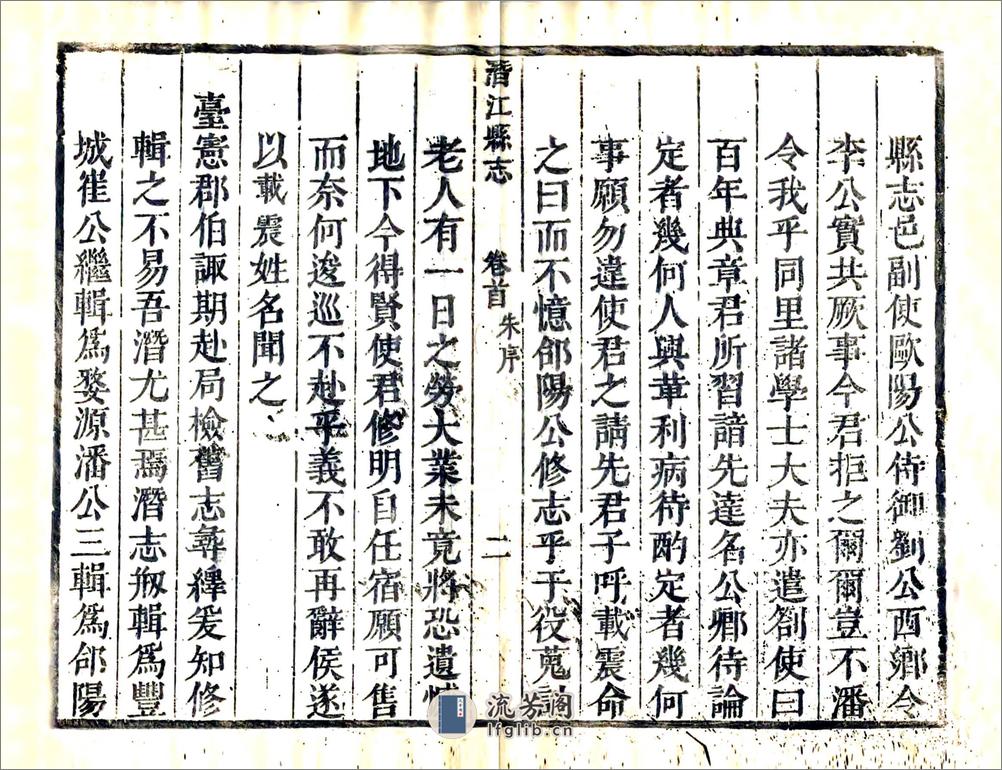 縣志邑副使歐陽公侍御劉公西鄉令
李公實共厥事今君拒之爾爾豈不潘
令我乎同里諸學士大夫亦遣劄使曰
百年典章君所習諳先達名公卿待論
定者幾何人興革利病待酌定者幾何
事願勿違使君之請先君子呼載震命
之曰而不憶郃陽公修志乎于役蒐討
潛江縣志 卷首 朱序 二
老人有一日之勞大業未竟將恐遺憾
地下今得賢使君修明自任宿願可售
而奈何逡巡不赴乎義不敢再辭侯遂
以載震姓名聞之
臺憲郡伯諏期赴局檢舊志彝繹爰知修
輯之不易吾潛尤甚焉潛志剏輯為豐
城崔公繼輯為婺源潘公三輯為郃陽
流芳閣
lfglib.cn